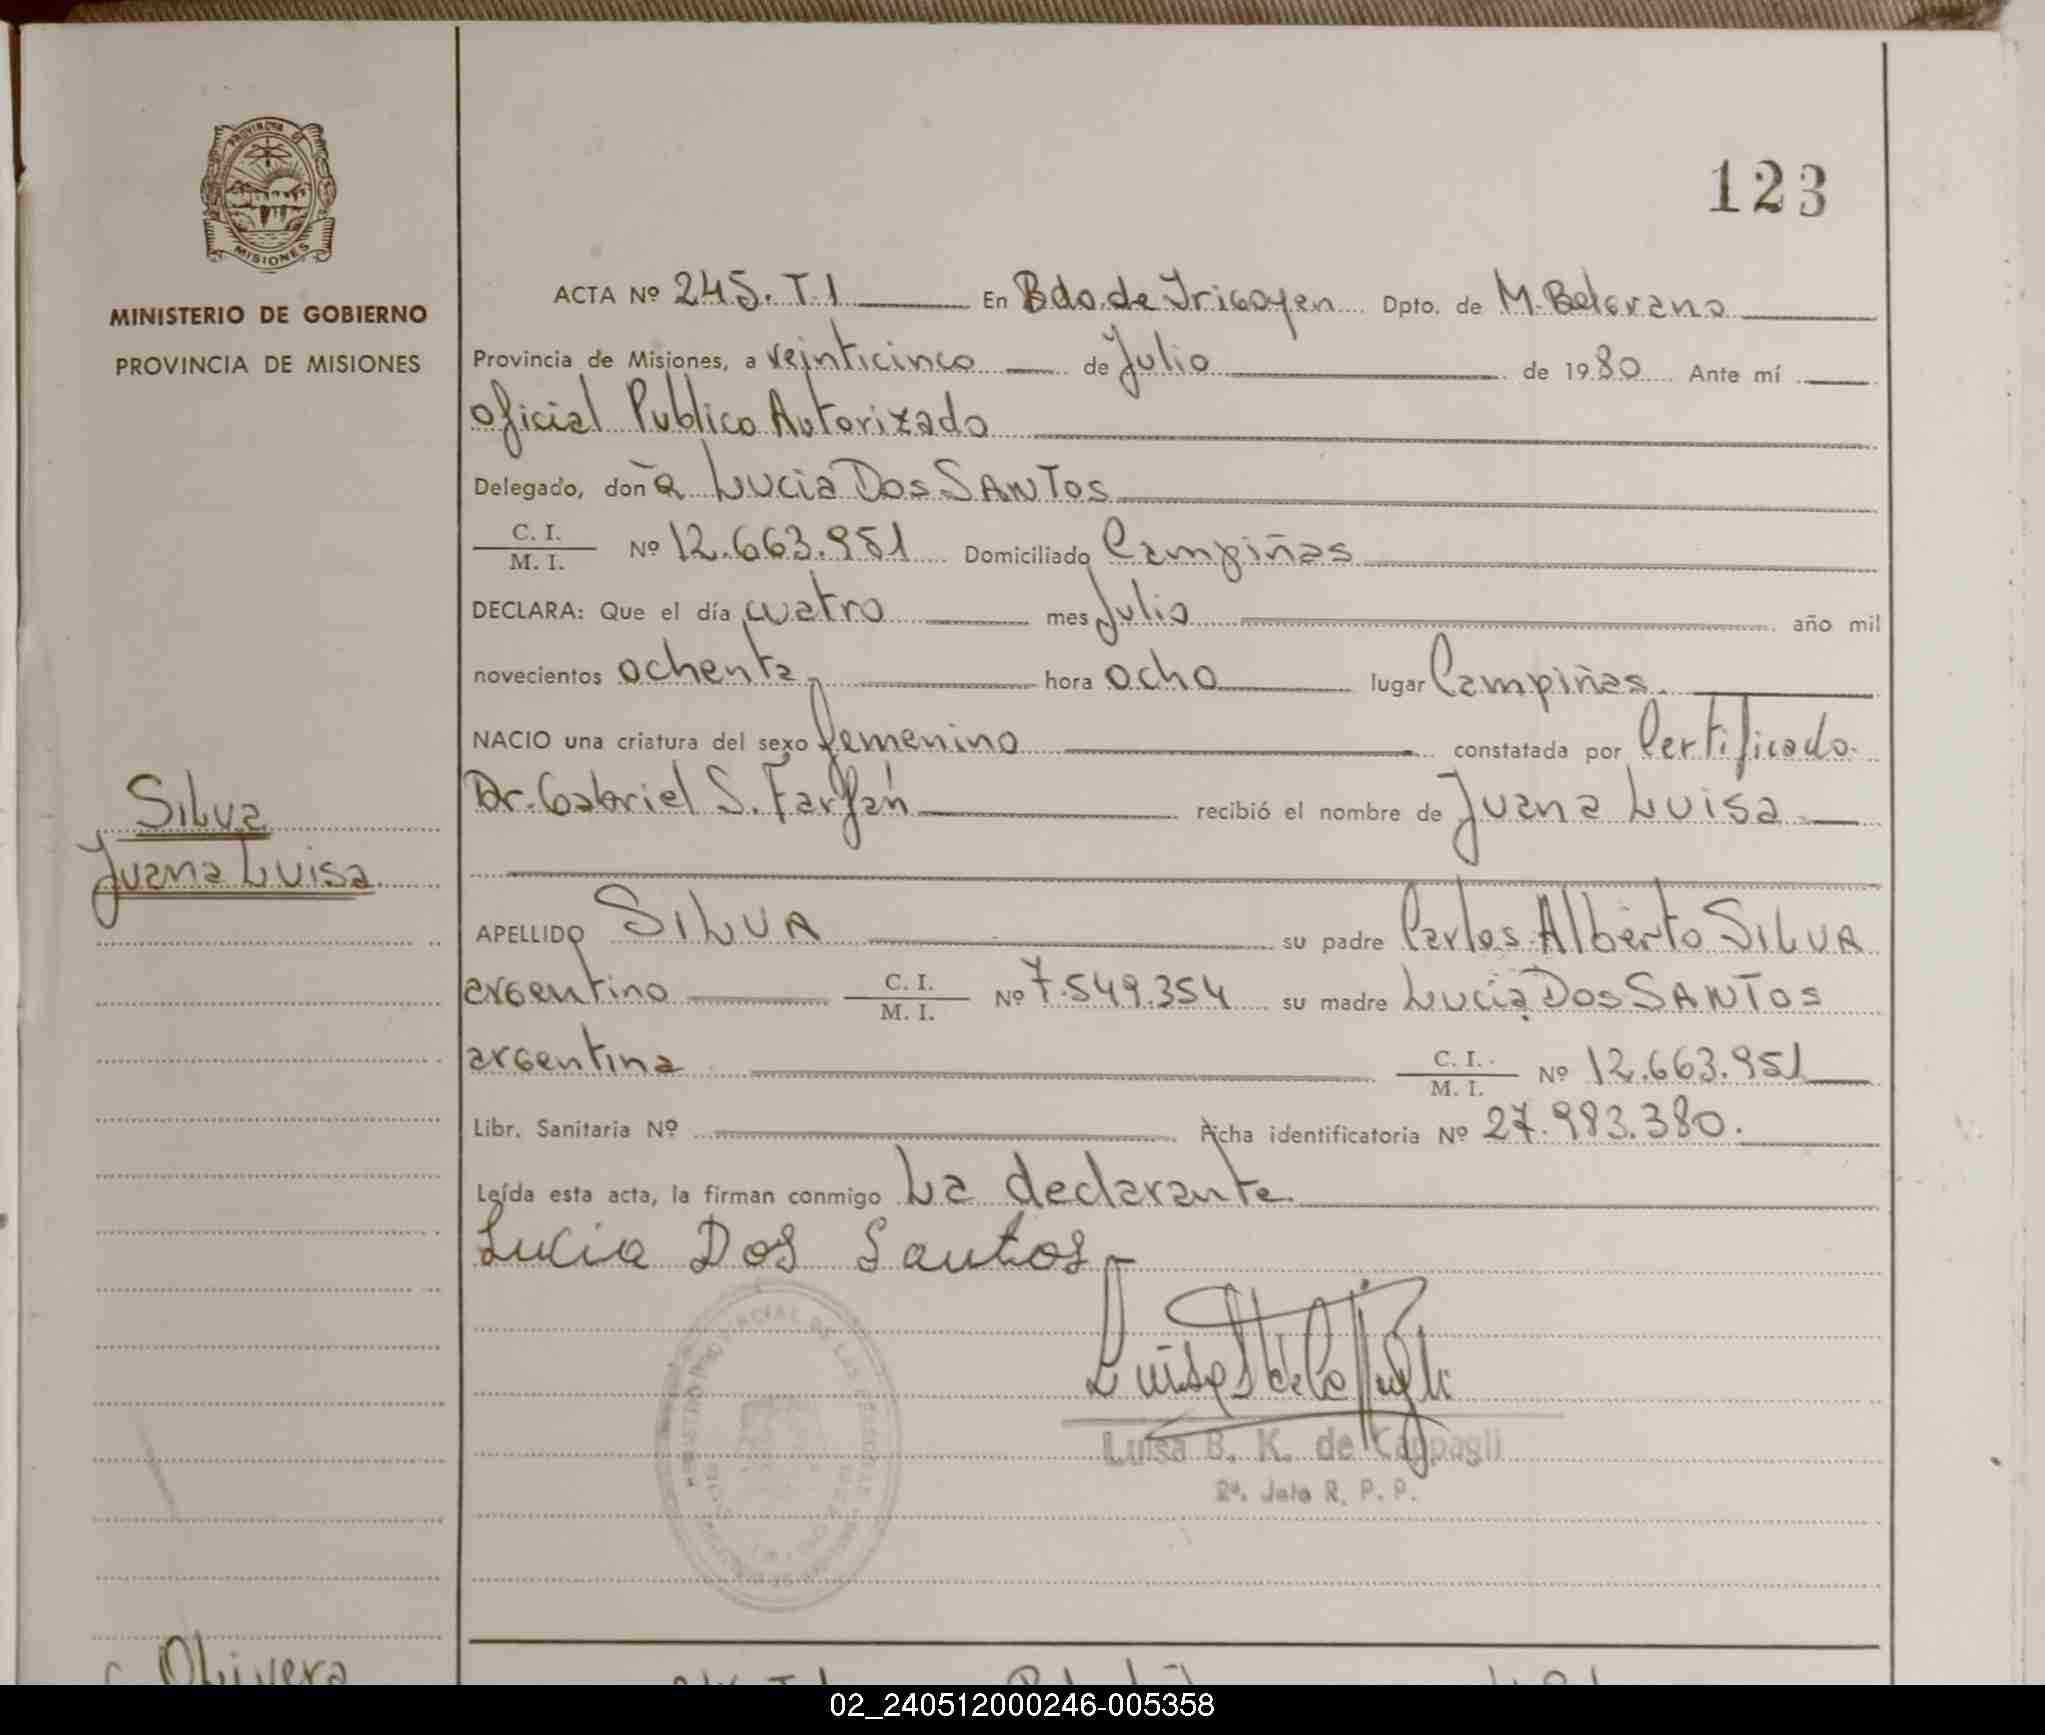 123
PROVINCIA DE
MISIONES
MINISTERIO DE GOBIERNO
PROVINCIA DE MISIONES
ACTA Nº 245. T. 1 En Bdo. de Irigoyen Dpto. de M. Belgrano
Provincia de Misiones, a veinticinco de Julio de 1980 Ante mí
Oficial Publico Autorizado
Delegado, doña Lucia Dos SANTos
C. I.
M. I. Nº 12.663.951 Domiciliado Campiñas
DECLARA: Que el día cuatro mes Julio año mil
novecientos ochenta hora ocho lugar Campiñas.
NACIO una criatura del sexo femenino constatada por Certificado
Dr. Gabriel S. Farfán recibió el nombre de Juana Luisa
Silva
Juana Luisa
APELLIDO SILVA su padre Carlos Alberto SILVA
argentino C. I.
M. I. Nº 7.549.354 su madre Lucia Dos SANTos
argentina C. I.
M. I. Nº 12.663.951
Libr. Sanitaria Nº Ficha identificatoria Nº 27.983.380.
Leída esta acta, la firman conmigo La declarante
Lucia Dos Santos
Luisa B. K. de Cappagli
2ª. Jefe R. P. P.
Olivera
02_240512000246-005358